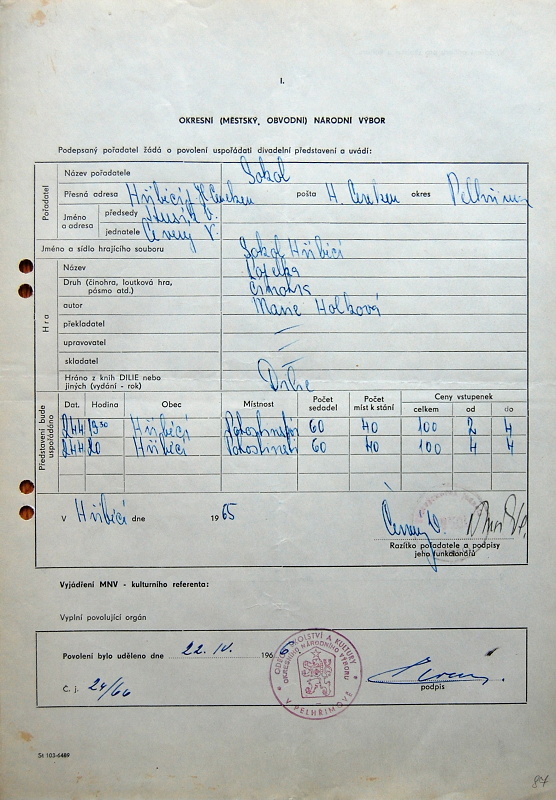 I.
OKRESNÍ (MĚSTSKÝ, OBVODNÍ) NÁRODNÍ VÝBOR
Podepsaný pořadatel žádá o povolení uspořádati divadelní představení a uvádí:
Pořadatel
Název pořadatele Sokol
Přesná adresa pošta okres
Jméno a adresa
předsedy
jednatele
Jméno a sídlo hrajícího souboru Sokol
Hra
Název
Druh (činohra, loutková hra, pásmo atd.) činohra
autor Marie Holková
překladatel
upravovatel
skladatel
Hráno z knih DILIE nebo jiných (vydání - rok) Dilie
Představení bude uspořádáno
Dat. Hodina Obec Místnost Počet sedadel Počet míst k stání Ceny vstupenek
celkem od do
19 30 60 40 100 2 4
20 60 40 100 4 4
V dne 1965
Razítko pořadatele a podpisy jeho funkcionářů
Vyjádření MNV - kulturního referenta:
Vyplní povolující orgán
Povolení bylo uděleno dne 22. IV. 196
Č. j. 24/66
podpis
ODBOR ŠKOLSTVÍ A KULTURY
OKRESNÍHO NÁRODNÍHO VÝBORU
V PELHŘIMOVĚ
St 103-6489
87